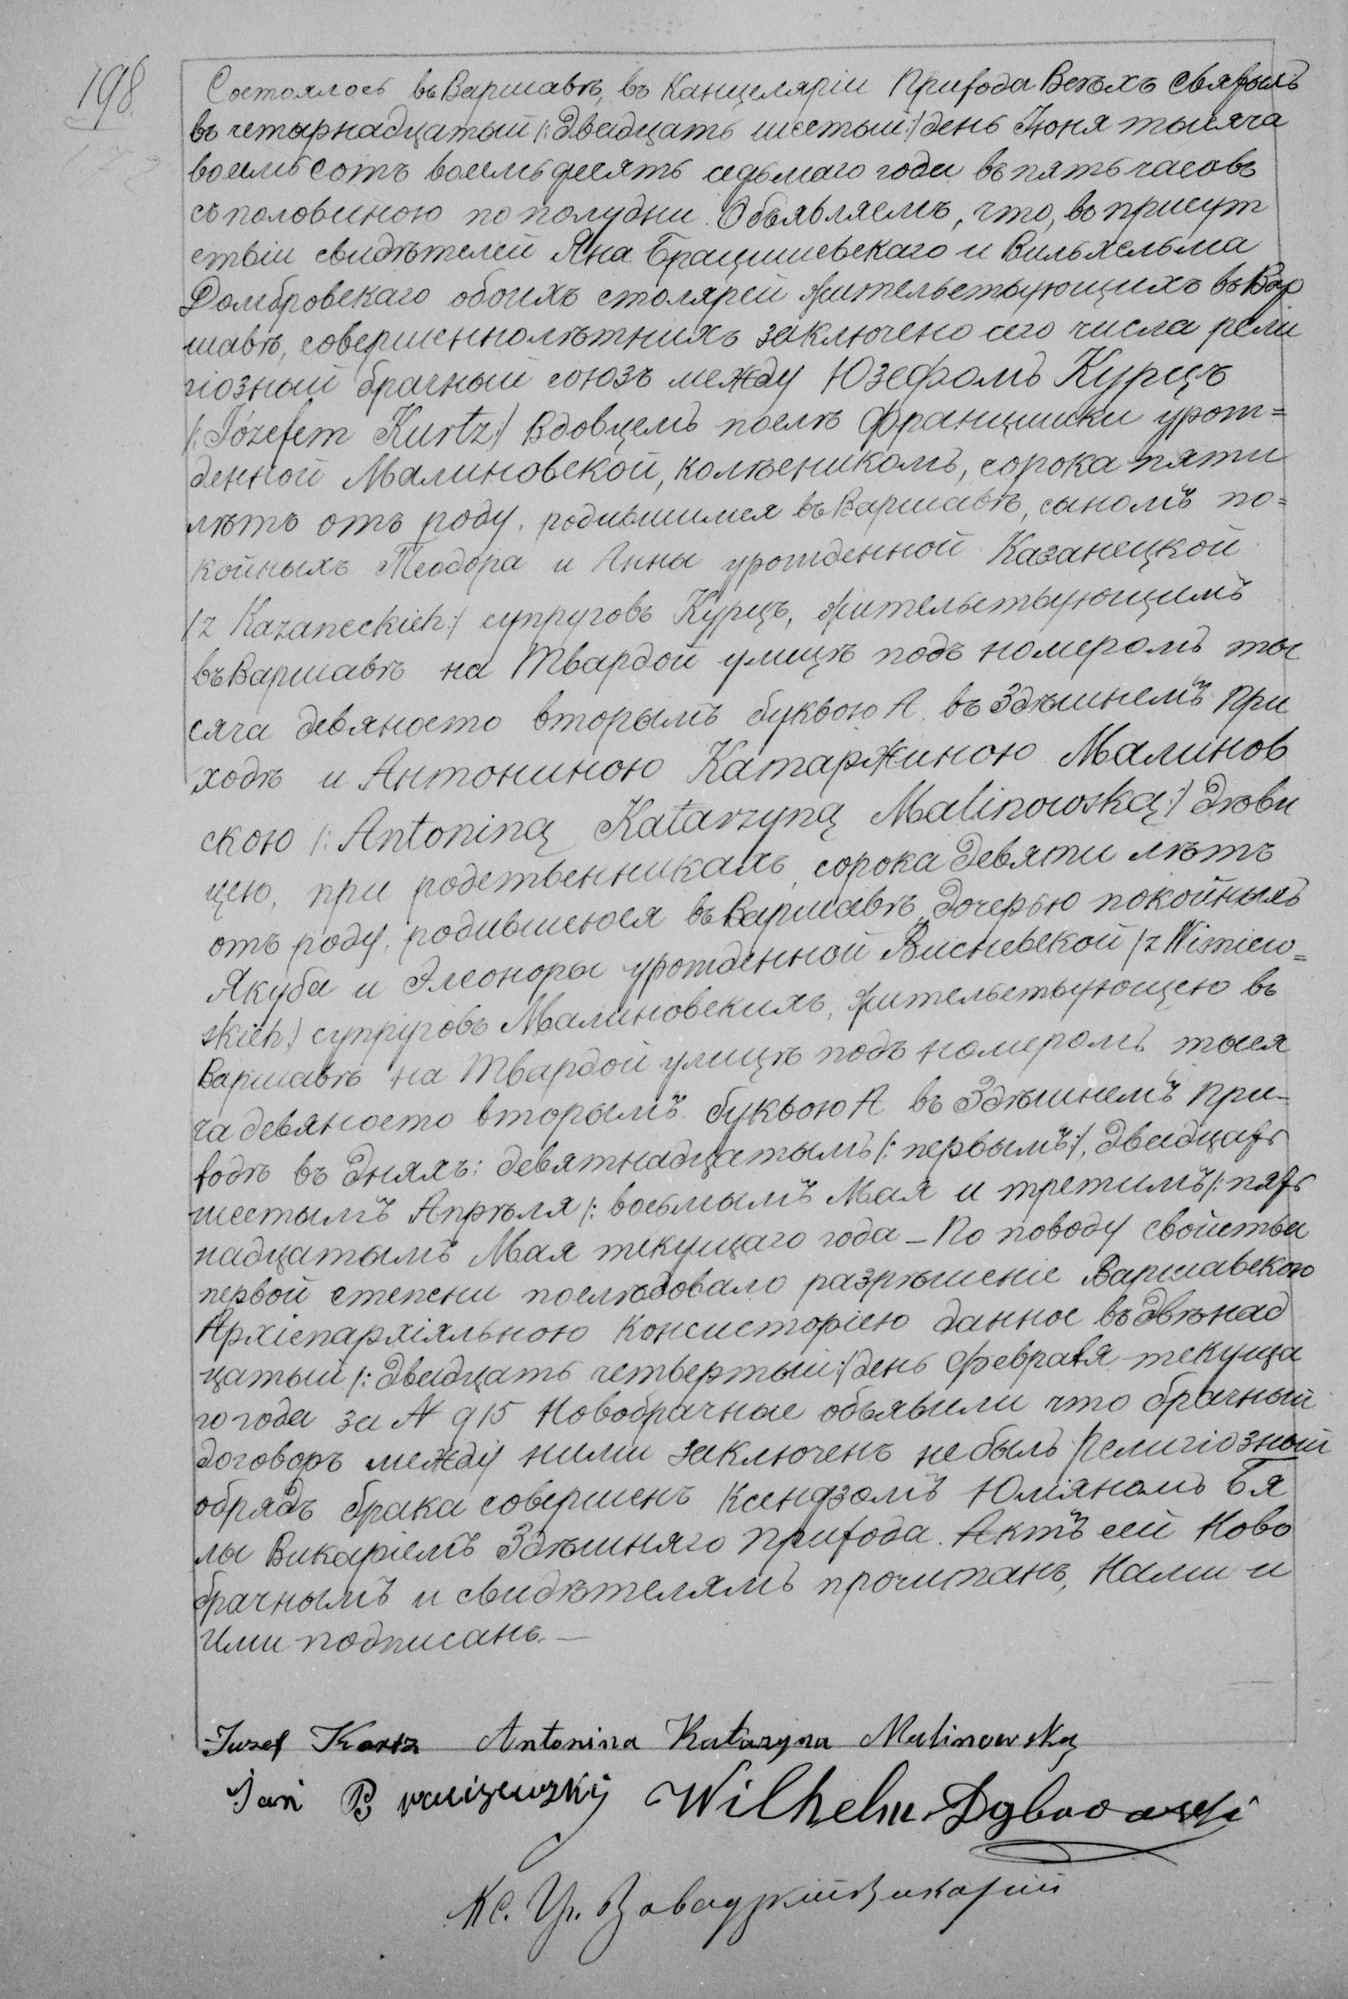 198.
Состоялось въ Варшавѣ, въ Канцеляріи Прихода Всѣхъ Святыхъ
въ четырнадцатый /: двадцать шестый :/ день Іюня тысяча
восемьсотъ восемьдесятъ седьмаго года въ пять часовъ
съ половиною по полудни. Объявляемъ, что, въ присут
ствіи свидѣтелей Яна Брацишевскаго и Вильхельма
Домбровскаго обоихъ столярей жительствующихъ въ Вар
шавѣ, совершеннолѣтнихъ заключено сего числа рели
гіозный брачный союзъ между Юзефомъ Курцъ
/: Józefem Kurtz :/ вдовцемъ послѣ Францишки урож=
денной Малиновской, колѣсникомъ, сорока пяти
лѣтъ отъ роду, родившимся въ Варшавѣ, сыномъ по=
койныхъ Теодора и Анны урожденной Казанецкой
/z Kazaneckich :/ супруговъ Курцъ, жительствующимъ
въ Варшавѣ на Твардой улицѣ подъ номеромъ ты
сяча девяносто вторымъ буквою А, въ здѣшнемъ При
ходѣ и Антониною Катаржиною Малинов
скою /: Antoniną Katarzyną Malinowską :/ дѣви
цею, при родственникахъ, сорока девяти лѣтъ
отъ роду, родившеюся въ Варшавѣ, дочерью покойныхъ
Якуба и Элеоноры урожденной Висневской /z Wisniew=
skich :/ супруговъ Малиновскихъ, жительствующею въ
Варшавѣ на Твардой улицѣ подъ номеромъ тыся
ча девяносто вторымъ буквою А въ здѣшнемъ При-
ходѣ въ дняхъ: девятнадцатымъ /: первымъ :/, двадцать
шестымъ Апрѣля /: восьмымъ Мая и третимъ /: пят
надцатымъ Мая текущаго года – По поводу свойства
первой степени послѣдовало разрѣшеніе Варшавскою
Архіепархіяльною Консисторіею данное въ двѣнад
цатый /: двадцать четвертый :/ день Февраля текуща
го года за N 915 Новобрачные объявили что брачный
договоръ между ними заключенъ не былъ Религіозный
обрядъ брака совершенъ Ксендзомъ Юліяномъ Бя
лы Викаріемъ Здѣшняго Прихода. Актъ сей Ново
брачнымъ и свидѣтелямъ прочитанъ, Нами и
Ими подписанъ. —
Juzef Kortz Antonina Katazyna Malinowską
Jan Wilhelm Dąbrowski
Кс. Викарій